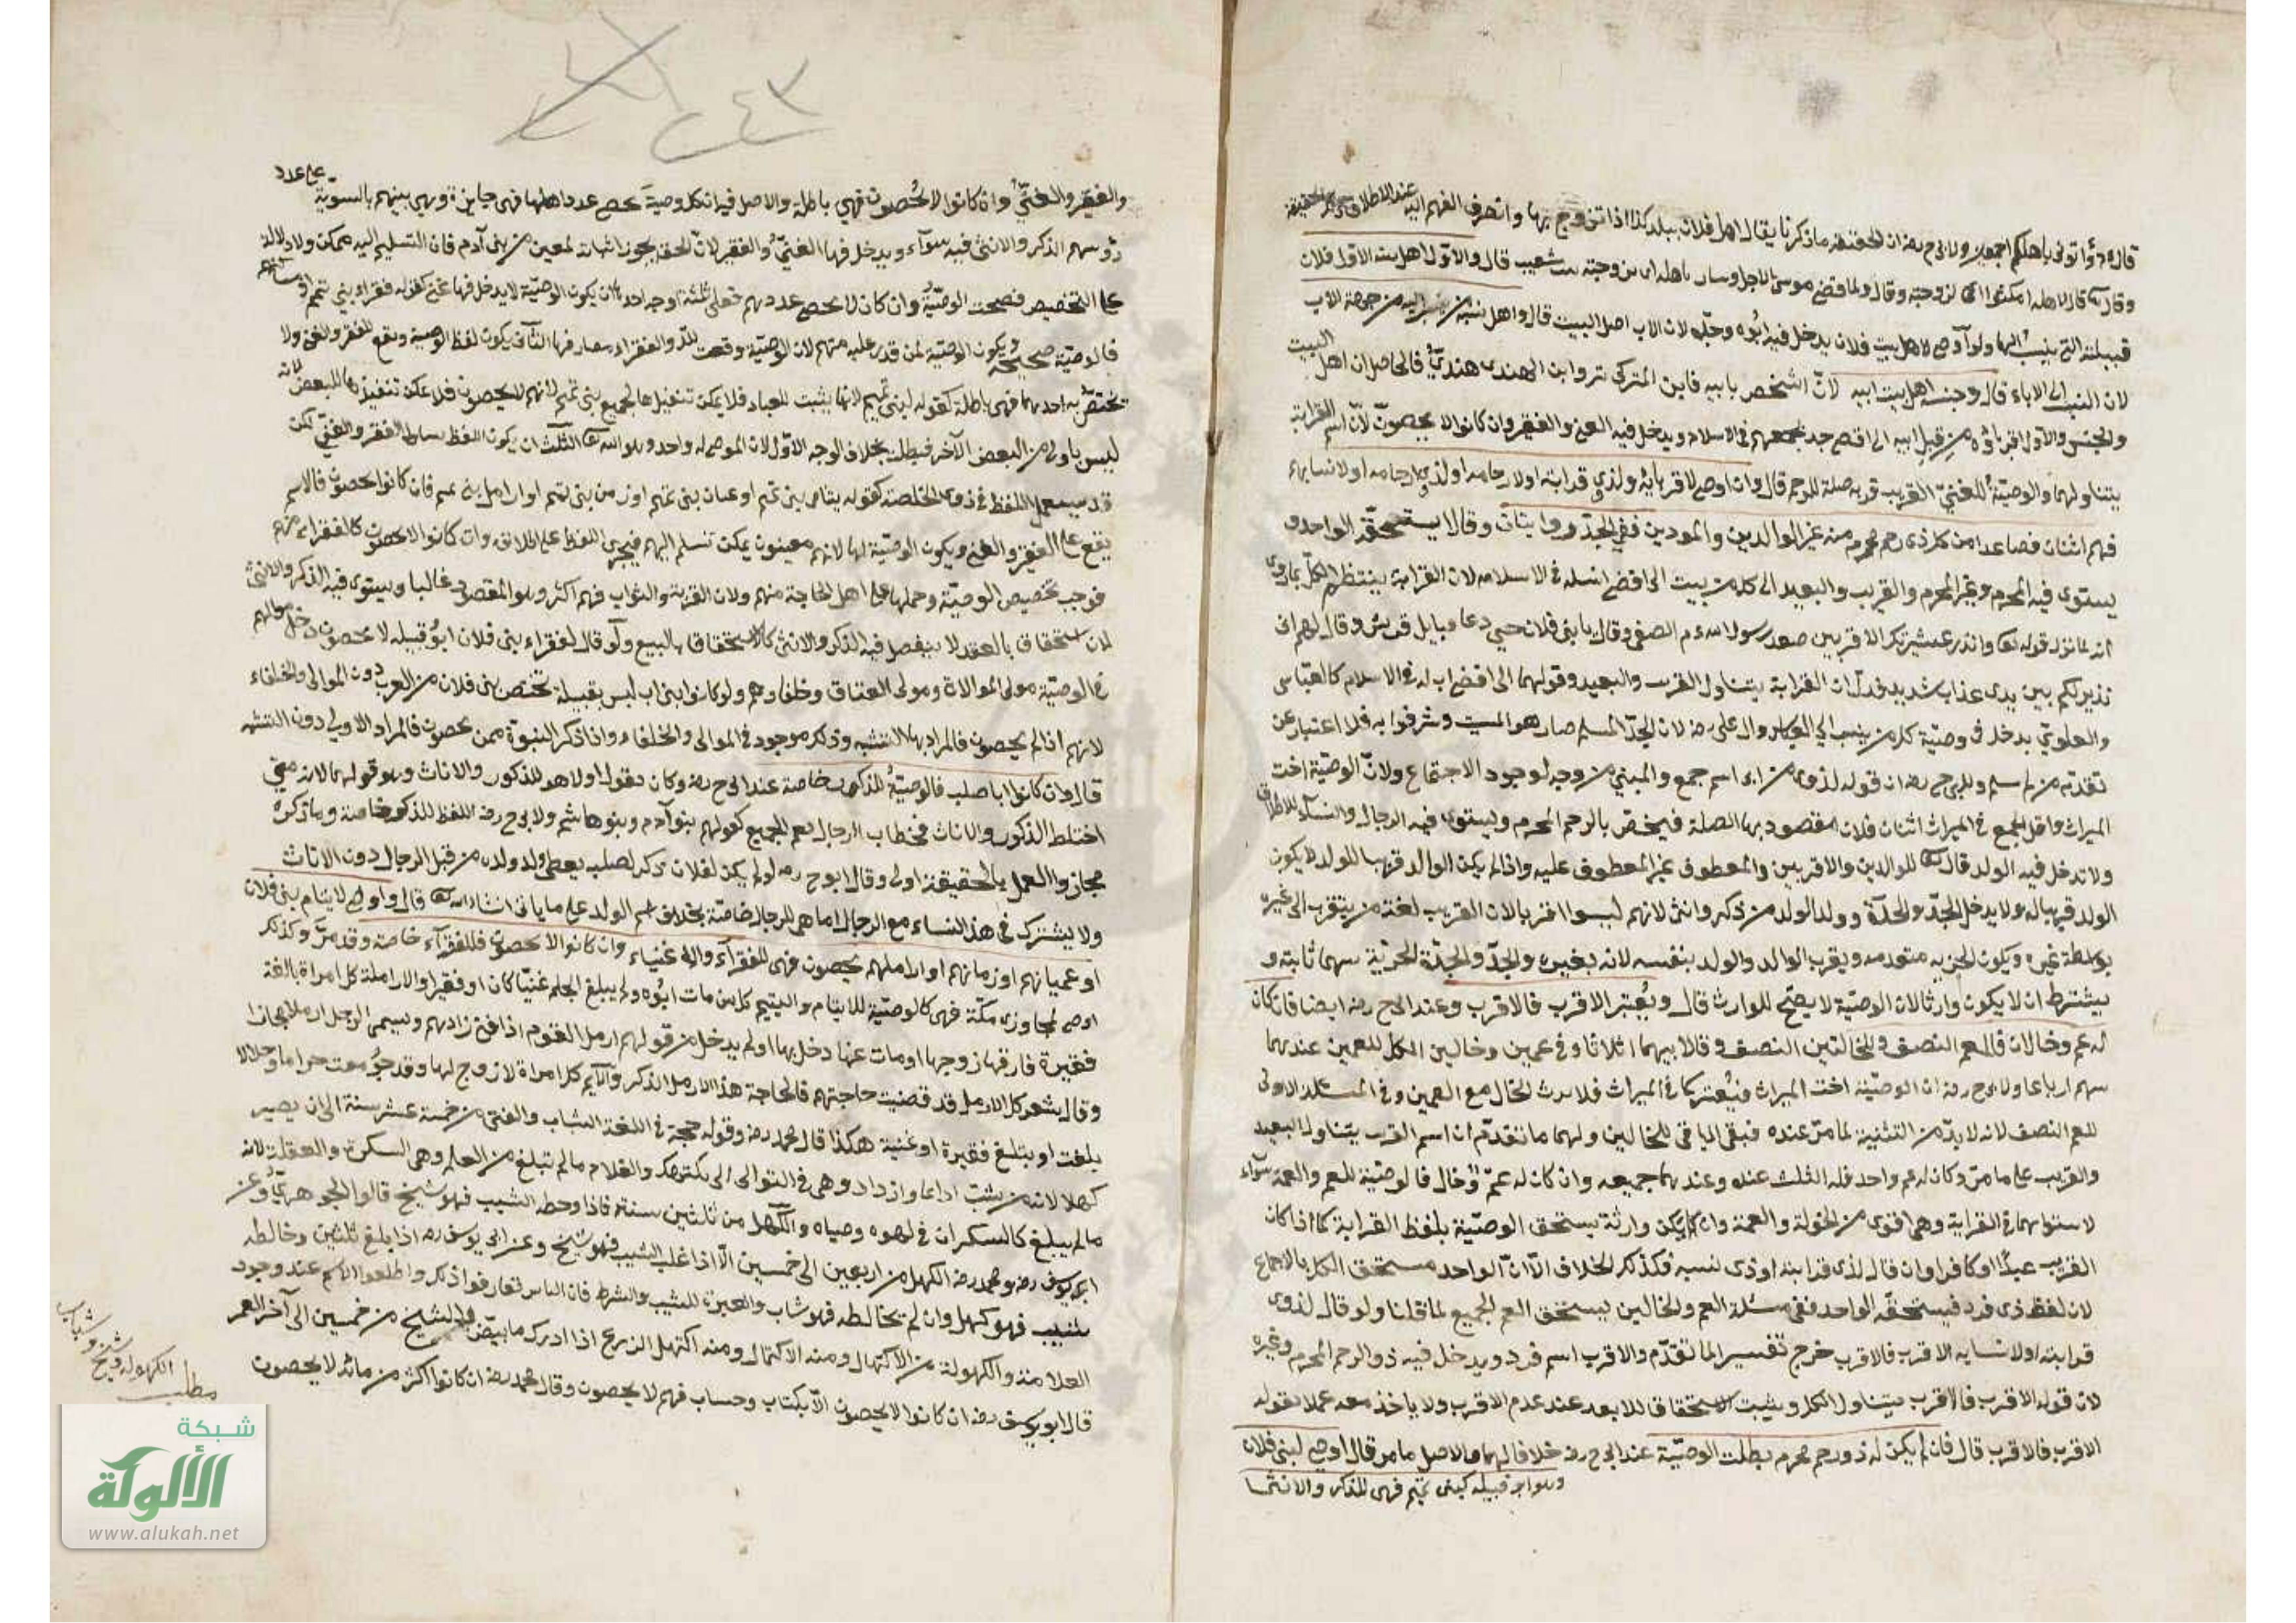 قال وأتوني بأهلكم اجمعين ولابي ح رضه ان الحقيقة ما ذكرنا يقال اهل فلان ببلد كذا اذا تزوج بها وانصرف الفهم اليه عند الاطلاق
وقال قال لاهله امكثوا اي لزوجته وقال ولما قضى موسى الاجل وسار باهله اي بزوجته بنت شعيب قال والآل اهل بيته الآل فلان
قبيلته التي ينسب اليها ولو اوصى لاهل بيت فلان يدخل فيه ابوه وجده لان الاب اصل البيت قال واهل نسبه من ينسب اليه من جهة الاب
لان النسب الى الاباء قال وجنسه اهل بيت ابيه لان الشخص بابيه فابن التركي تر وابن الهندي هنديّ فالحاصل ان اهل البيت
والجنس والآل اقرباؤه من قبل ابيه الى اقصى جد يجمعهم في الاسلام ويدخل فيه الغني والفقير وان كانوا لا يحصون لان اسم القرابة
يتناولهما والوصيّة للغنيّ القريب قربه صلة للرحم قال وان اوصى لاقربايه ولذي قرابته او لارحامه او لذي ارحامه او لانسابه
فهم اثنان فصاعدا من كل ذي رحم محرم منه غير الوالدين والمولودين ففي الجدّ روايتان وقالا يستحقه الواحد و
يستوي فيه المحرم وغير المحرم والقريب والبعيد الى كل من ينسب الى اقصى اب له في الاسلام لان القرابة ينتظم الكل بما روى
انه لما نزل قوله تعا وانذر عشيرتك الاقربين صعد رسول الله عم الصفى وقال يا بني فلان حتى دعا قبايل قريش وقال لهم اني
نذير لكم بين يدي عذاب شديد فدل ان القرابة يتناول القريب والبعيد وقولهما الى اقصى اب له في الاسلام كالعباسي
والعلويّ يدخل في وصيّة كل من ينسب الى العباس وال علي رضه لان الجدّ المسلم صار هو النسب وشرفوا به فلا اعتبار عن
تقدمه من لم يسلم ولابي ح رضه ان قوله لذوي من اسم جمع والمبني من وجه لوجود الاجتماع ولان الوصيّة اخت
الميراث واقل الجمع في الميراث اثنان فلان مقصود بها الصلة فيختص بالرحم المحرم ويستوي فيه الرجال والنساء للاطلاق
ولا تدخل فيه الولد قال تعا للوالدين والاقربين والمعطوف غير المعطوف عليه واذا لم يكن الوالد قريبا للولد لا يكون
الولد قريبا له ولا يدخل الجدّ والجدّة وولد الولد من ذكر وانثى لانهم ليسوا اقربا لان القريب لغة من يتقرب الى غيره
بواسطة غيره ويكون الجزيه متعدمه ويقرب الوالد والولد بنفسه لا بغيره والجدّ والجدّة الجزئيّة بينهما ثابته و
يشترط ان لا يكون وارثا لان الوصيّة لا يصح للوارث قال ويعتبر الاقرب فالاقرب وعند ابي ح رضه ايضا فان كان
له عم وخالان فللعم النصف وللخالين النصف وقالا بينهما اثلاثا وفي عمين وخالين الكل للعمين عنده وعندهما
بينهم ارباعا ولابي ح رضه ان الوصيّة اخت الميراث فيُعتبر كما في الميراث فلا يرث الخال مع العمين وفي المسئلة الاولى
للعم النصف لانه لا بدّ من التثنية لما مرّ عنده فبقي الباقي للخالين ولهما ما تقدّم ان اسم القريب يتناول البعيد
والقريب على ما مرّ وكان له عم واحد فله الثلث عنده وعندهما جميعه وان كان له عمّ وخال فالوصيّة للعم والعمة سواء
لاستوائهما في القرابة وهي اقوى من الخؤلة والعمة وان لم يكن وارثة يستحق الوصيّة بلفظ القرابة كما اذا كان
القريب عبدًا او كافرا وان قال لذي قرابته او ذي نسبه فكذلك الخلاف الا ان الواحد يستحق الكل بالاجماع
لان لفظ ذي فرد فيستحقه الواحد ففي مسئلة العم والخالين يستحق العم الجميع لما قلنا ولو قال لذوي
قرابته او لانسابه الاقرب فالاقرب خرج تفسيرا لما تقدّم والاقرب اسم فرد ويدخل فيه ذو الرحم المحرم وغيره
لان قوله الاقرب فالاقرب يتناول الكل ويثبت الاستحقاق للابعد عند عدم الاقرب ولا ياخذ معه عملا بقوله
الاقرب فالاقرب قال فان لم يكن له ذو رحم محرم بطلت الوصيّة عند ابي ح رضه خلافا لهما والاصل ما مر قال اوصى لبني فلان
وهو ابو قبيله كبني تميم فهي للذكر والانثى
والفقير والغنيّ وان كانوا لا يُحصون فهي باطلة والاصل فيه ان كل وصية يحصى عدد اهلها فهي جايزة وهي بينهم بالسوية على عدد
رؤسهم الذكر والانثى فيه سوآء ويدخل فيها الغنيّ والفقير لان الحق يجوز اثباته لمعين من بني آدم فان التسليم اليه ممكن ولا دلالة
على التخصيص فصحت الوصيّة وان كان لا يحصى عددهم فعلى ثلثة اوجه احدها ان يكون الوصيّة لا يدخل فيها غني كقوله فقراء بني تميم او مساكينهم
فالوصيّة صحيحة ويكون الوصيّة لمن قدر عليه منهم لان الوصيّة وقعت لله والفقراء مصارفها الثاني يكون لفظ الوصية ويقع للفقير والغني ولا
تختصّ به احدهما فهي باطلة كقوله لبني تميم لانها يثبت للعباد فلا يمكن تنفيذها لجميع بني تميم لانهم لا يحصون فلا يمكن تنفيذها للبعض لانه
ليس باولى من البعض الآخر فبطلت بخلاف الوجه الاوّل لان الموصى له واحد وهو الله تعا الثالث ان يكون اللفظ يتناول الفقير والغني لكن
قد يستعمل اللفظ في ذوي الخلّة كقوله يتامى بني تميم او عميان بني تميم او زمن بني تميم او ارامل بني تميم فان كانوا يحصون فالاسم
يقع على الفقير والغني ويكون الوصيّة لها لانهم معينون يمكن تسلم اليهم فيجري اللفظ على اطلاقه وان كانوا لا يحصون كالفقراء منهم
فوجب تخصيص الوصيّة وحملها على اهل الحاجة منهم ولان القربة والثواب فيهم اكثر وهو المقصود غالبا ويستوي فيه الذكر والانثى
لان استحقاق بالعقد لا ينفصل فيه الذكر والانثى كالاستحقاق بالبيع ولو قال لفقراء بني فلان ابو قبيله لا يحصون دخل مواليهم
في الوصيّة مولى الموالاة ومولى العتاق وحلفاؤهم ولو كانوا بني اب ليس بقبيلة تختص ببني فلان من العرب دون الموالي والحلفاء
لانهم اذا لم يحصون فالمراد بها النسبة وذلك موجود في الموالي والحلفاء واذا ذكر البنوة ممن يحصون فالمراد الاولى دون النسبة
قال وان كانوا ابا صلب فالوصيّة للذكور خاصة عند ابي ح رضه وكان يقول اولا هو للذكور والاناث وهو قولهما لانه متى
اختلط الذكور والاناث فخطاب الرجال يعم الجميع كقولهم بنو آدم وبنو هاشم ولابي ح رضه اللفظ للذكور خاصة وما ذكره
مجاز والعمل بالحقيقة اولى وقال ابو ح رضه لو لم يكن لفلان ذكر لصلبه يعطى ولد ولده من قبل الرجال دون الاناث
ولا يشترك في هذا النساء مع الرجال انما هي للرجال خاصّة بخلاف اسم الولد على ما ياتي انشاء الله تعا قال واوصى لايتام بني فلان
او عميانهم او زمانهم او اراملهم يحصون فهي للفقرآء والاغنياء وان كانوا لا يحصون فللفقرآء خاصة وقد مرّ وكذلك
اوصى لمجاوري مكّة فهي كالوصيّة للايتام واليتيم كل من مات ابُوه ولم يبلغ الحلم غنيّا كان او فقيرا والارملة كل امراة بالغة
فقيرة فارقها زوجها او مات عنها دخل بها او لم يدخل من قولهم ارمل القوم اذا فني زادهم ويسمى الرجل ارملا مجازا
وقال يشعر كل الارامل قد قضيت حاجتهم فالحاجة هذا الارمل الذكر والايّم كل امراة لا زوج لها وقد جومعت حراما وحلالا
بلغت او يبلغ فقيرة او غنية هكذا قال محمد رضه وقوله حجة في اللغة الشاب والفتى من خمسة عشر سنة الى ان يصير
كهلا لانه من يشب اذا نما وازداد وهي في التوالي الى يكتهل والغلام ما لم تبلغ من العلم وهي السكرة والعقلة لانه
ما لم يبلغ كالسكران في لهوه وصباه والكهل من ثلثين سنة فاذا وخطه الشيب فهو شيخ قاله الجوهريّ وعن
ابي يوسف رضه ومحمد رضه الكهل من اربعين الى خمسين الّا اذا غلب الشيب فهو شيخ وعن ابي يوسف رضه اذا بلغ ثلثين وخالطه
شيب فهو كهل وان لم يخالطه فهو شاب والعبرة للشيب والشرط فان الناس تعارفوا ذلك واطلقوا الاسم عند وجود
العلامة والكهولة من الاكتهال ومنه الاكتمال ومنه اكتهل الزرع اذا ادرك ما بيّض والشيخ من خمسين الى آخر العمر
قال ابو يوسف رضه ان كانوا لا يحصون الّا بكتاب وحساب فهم لا يحصون وقال محمد رضه ان كانوا اكثر من مائة لا يحصون
مطلب
الكهولة وشيخ
وشباب
شبكة
الألوكة
www.alukah.net